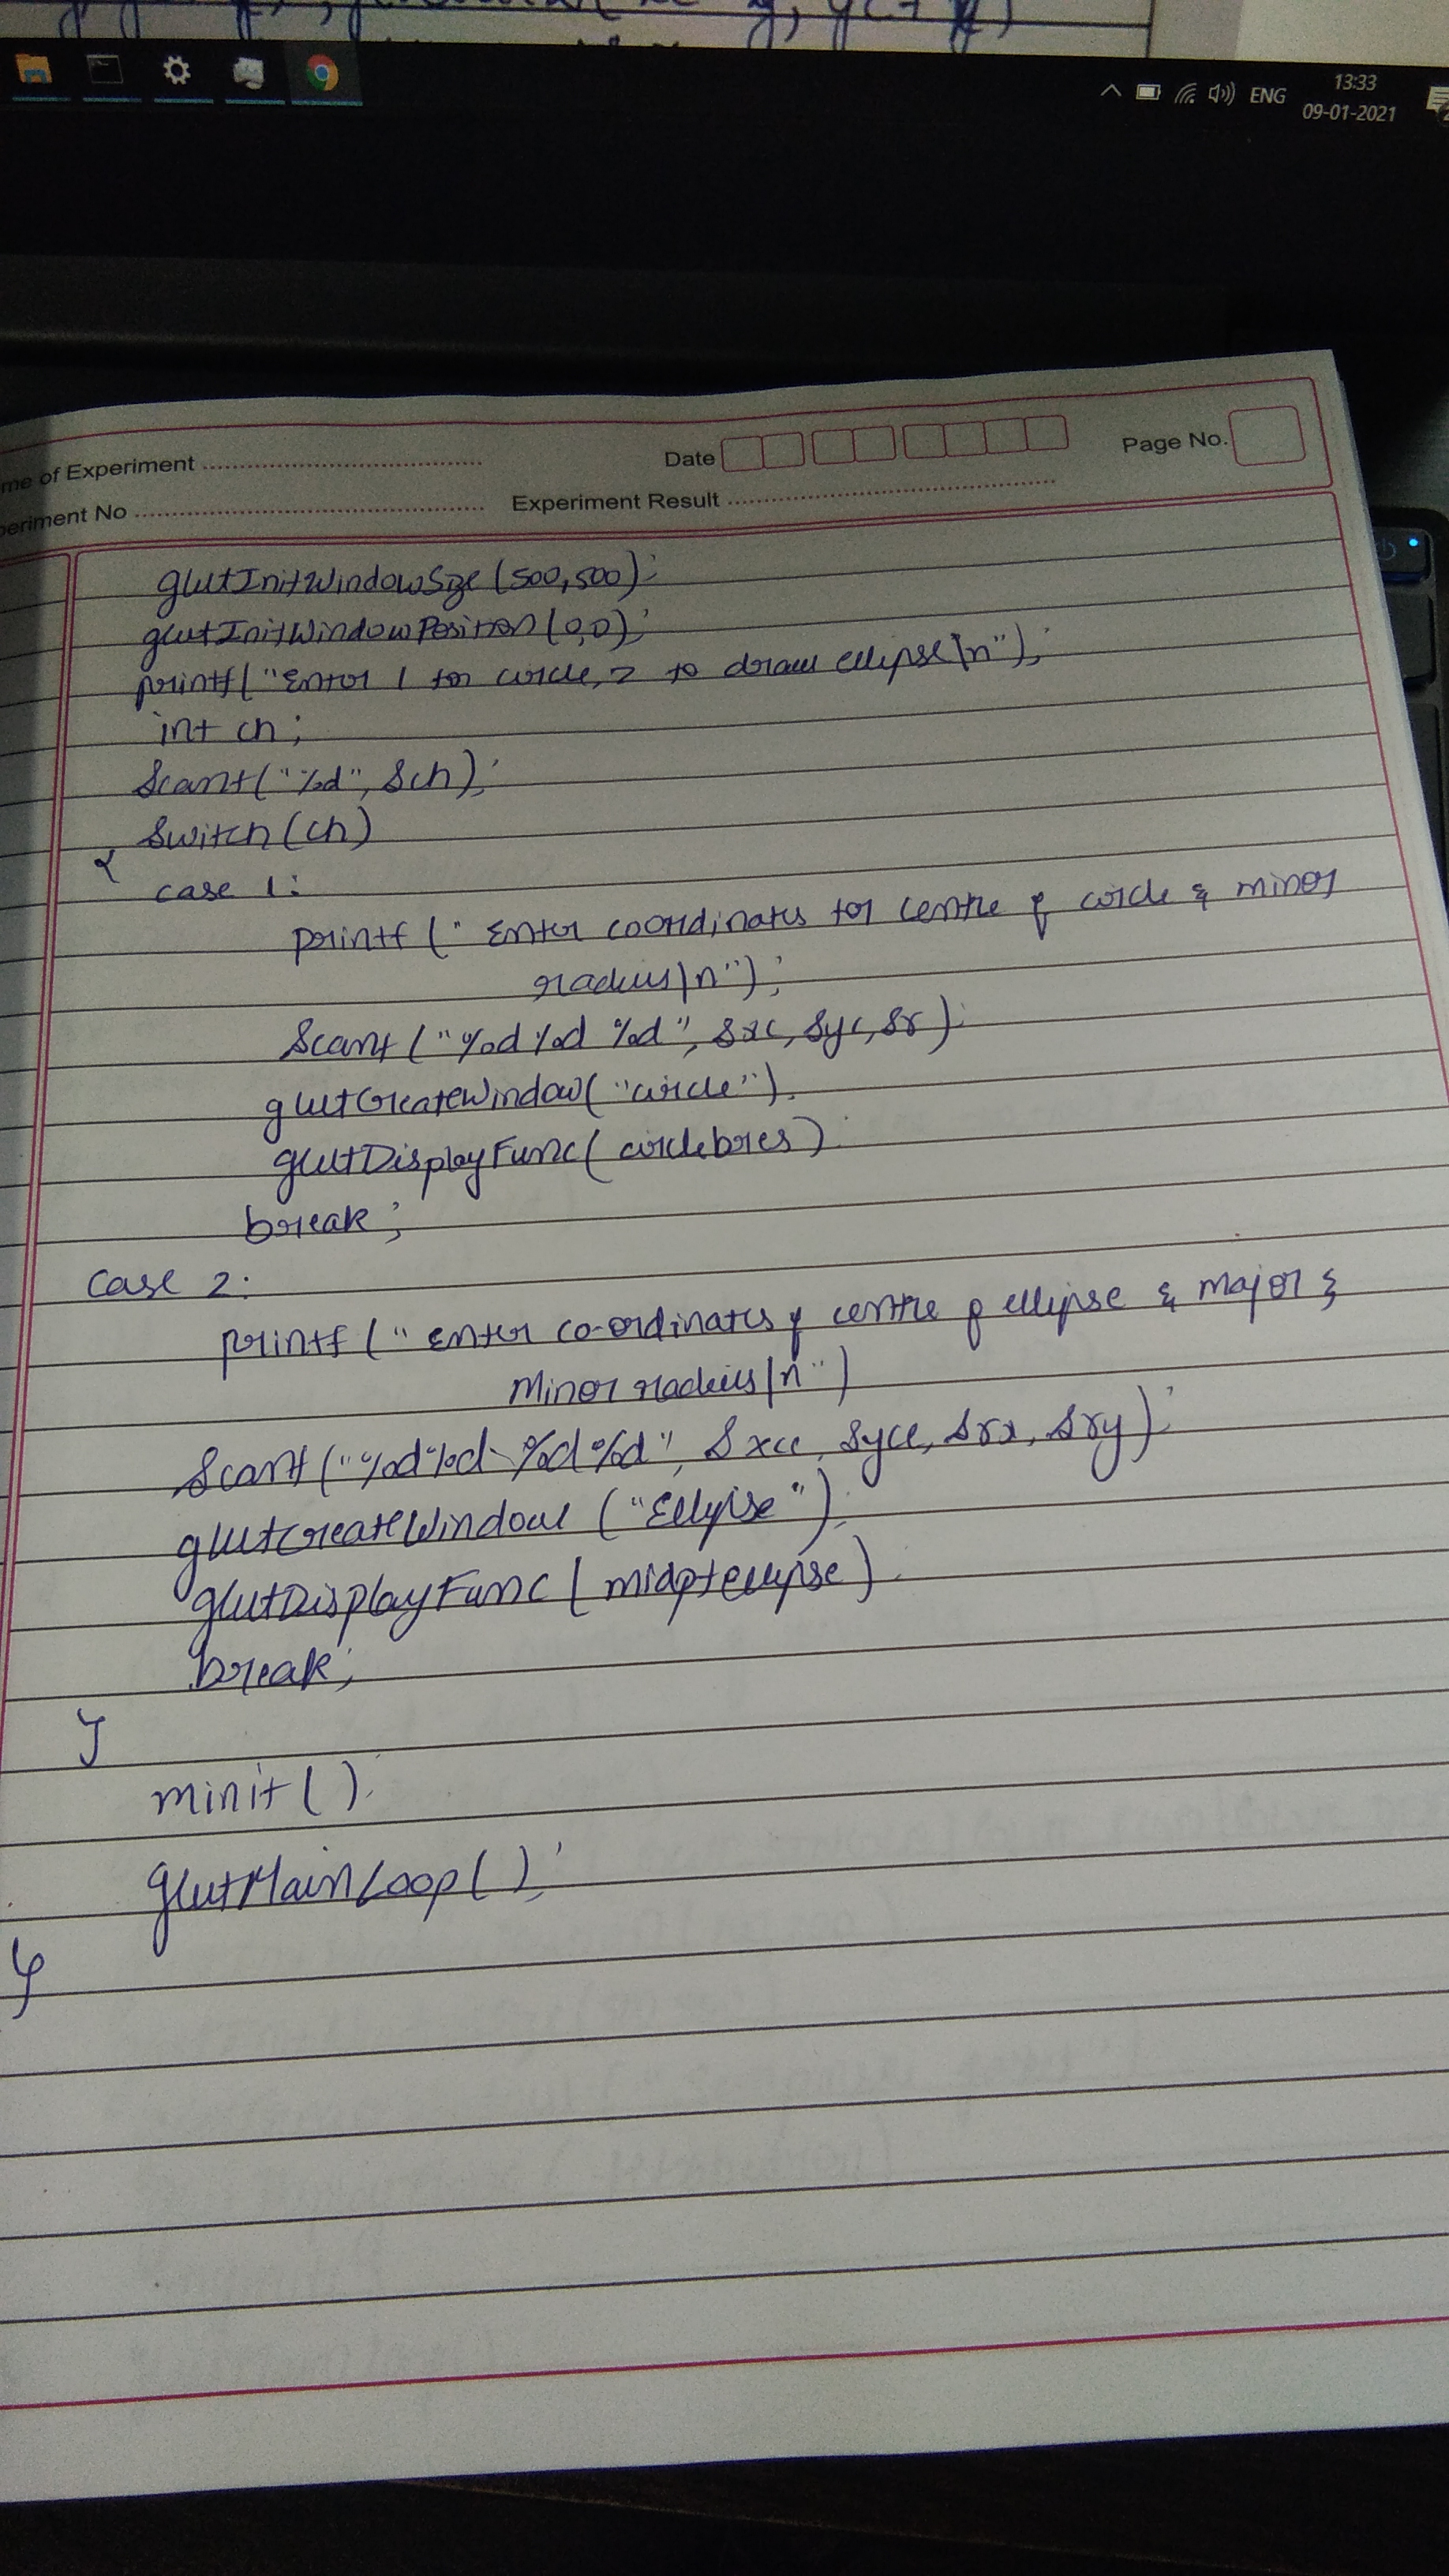 13:33
ENG
09-01-2021
me of Experiment
Date
Page No.
periment No
Experiment Result
glutInitWindowSize (500,500);
glutInitWindowPosition (0,0);
printf("Enter 1 for circle, 2 to draw ellipse\n");
int ch;
Scanf("%d", &ch);
Switch (ch)
{
case 1:
printf (" Enter coordinates for centre of circle & minor
radius\n");
Scanf ("%d %d %d", &xc, &yc, &r);
glutCreateWindow( "circle");
glutDisplayFunc( circlebres);
break;
Case 2:
printf (" Enter co-ordinates of centre of ellipse & major &
Minor radius\n")
Scanf ("%d%d %d%d", &xce, &yce, &rx, &ry);
glutCreateWindow ("Ellipse");
glutDisplayFunc ( midptellipse);
break;
}
minit( );
glutMainLoop( );
}